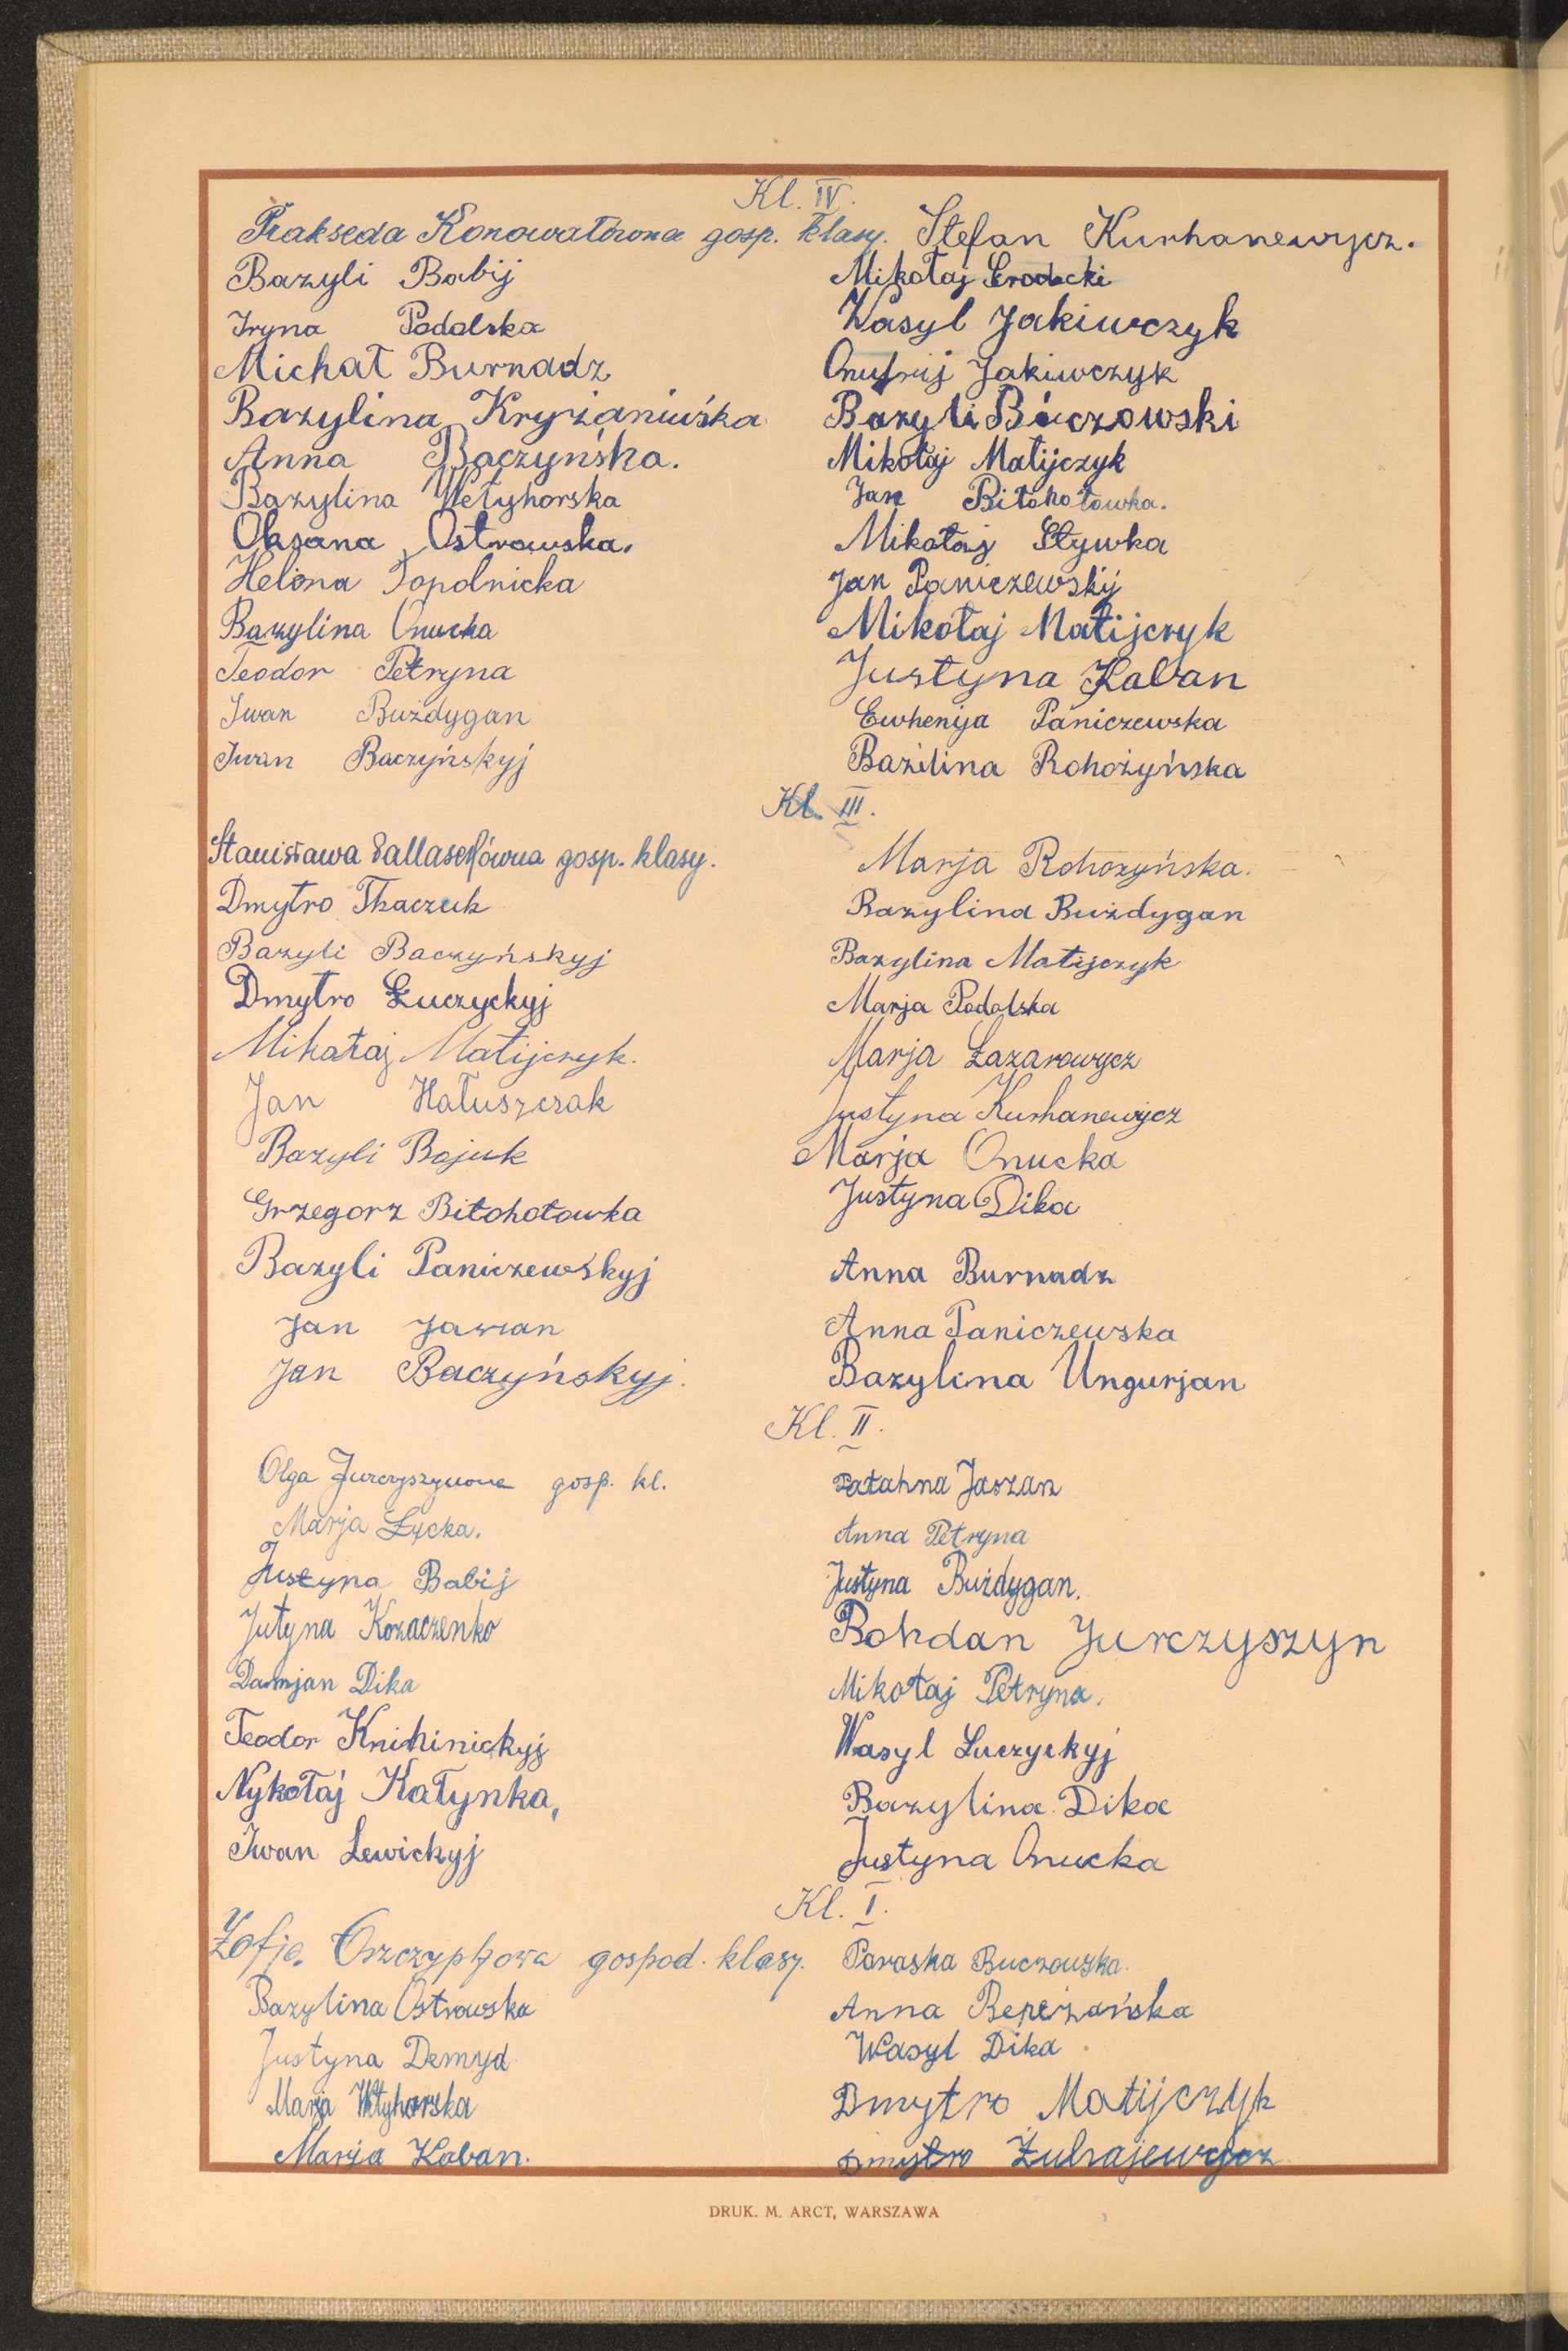 Kl. IV.
Prakseda Konowałówna gosp. klasy.
Bazyli Babij
Iryna Podolska
Michał Burnadz
Bazylina Kryżaniwśka
Anna Baczyńska.
Bazylina Wełyhorska
Oksana Ostrowska.
Helena Topolnicka
Bazylina Onucka
Teodor Petryna
Iwan Bużdygan
Iwan Baczyńskyj
Stefan Kurhanewycz.
Mikołaj Grodecki
Wasyl Jakiwczyk
Onufrij Jakiwczyk
Bazyli Buczowski
Mikołaj Matijczyk
Jan Biłohołowka.
Mikołaj Stywka
Jan Paniczewskij
Mikołaj Matijczyk
Justyna Kaban
Ewhenija Paniczewska
Bazilina Rohożyńska
Kl. III.
Stanisława gosp. klasy.
Dmytro Tkaczuk
Bazyli Baczyńskyj
Dmytro Łuczyckyj
Mikałaj Matijczyk.
Jan Hałuszczak
Bazyli Bojuk
Grzegorz Biłohołowka
Bazyli Paniczewskyj
Jan
Jan Baczyńskyj.
Marja Rohozyńska.
Bazylina Bużdygan
Bazylina Matijczyk
Marja Podolska
Marja Łazarowycz
Justyna Kurhanewycz
Marja Onucka
Justyna Dika
Anna Burnadz
Anna Paniczewska
Bazylina Ungurjan
Kl. II.
Olga Jurczyszynowa gosp. kl.
Marja Łycka.
Justyna Babij
Jutyna Kozaczenko
Damjan Dika
Teodor Knihinickyj
Nykołaj Kałynka,
Iwan Lewickyj
Patahna Jaszan
Anna Petryna
Justyna Bużdygan.
Bohdan Jurczyszyn
Mikołaj Petryna.
Wasyl Łuczyckyj
Bazylina Dika
Justyna Onucka
Kl. I.
Zofja gospod. klasy.
Bazylina Ostrowska
Justyna Demyd
Marja Wełyhorska
Marja Kaban.
Paraska Buczowska.
Anna Bereżańska
Wasyl Dika
Dmytro Matijczyk
Dmytro
DRUK. M. ARCT, WARSZAWA